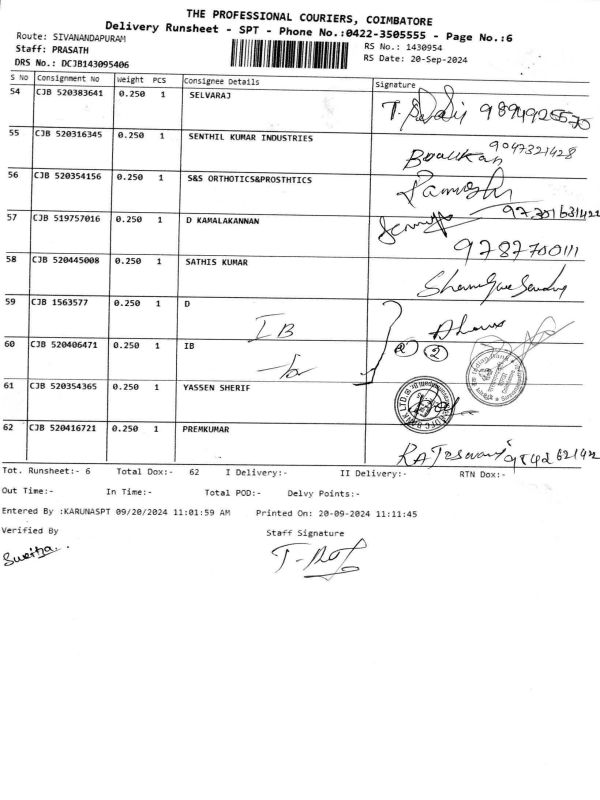 THE PROFESSIONAL COURIERS, COIMBATORE
Delivery Runsheet - SPT - Phone No.:0422-3505555 - Page No.:6
Route: SIVANANDAPURAM
Staff: PRASATH
DRS No.: DCJB143095406
RS No.: 1430954
RS Date: 20-Sep-2024
S No Consignment No Weight PCS Consignee Details Signature
54 CJB 520383641 0.250 1 SELVARAJ
55 CJB 520316345 0.250 1 SENTHIL KUMAR INDUSTRIES 9047321428
56 CJB 520354156 0.250 1 S&S ORTHOTICS&PROSTHTICS
57 CJB 519757016 0.250 1 D KAMALAKANNAN
9787700111
58 CJB 520445008 0.250 1 SATHIS KUMAR
59 CJB 1563577 0.250 1 D
IB
60 CJB 520406471 0.250 1 IB 2
61 CJB 520354365 0.250 1 YASSEN SHERIF
62 CJB 520416721 0.250 1 PREMKUMAR
Tot. Runsheet:- 6 Total Dox:- 62 I Delivery:- II Delivery:- RTN Dox:-
Out Time:- In Time:- Total POD:- Delvy Points:-
Entered By :KARUNASPT 09/20/2024 11:01:59 AM Printed On: 20-09-2024 11:11:45
Verified By Staff Signature